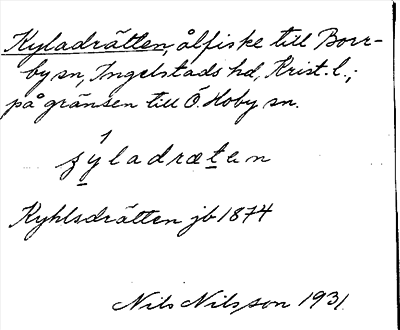 Kyladrätten, ålfiske till Borr-
by sn, Ingelstads hd, Krist. l.;
på gränsen till Ö. Hoby sn.
ȥýladræten
Kyhlsdrätten jb 1874
Nils Nilsson 1931.